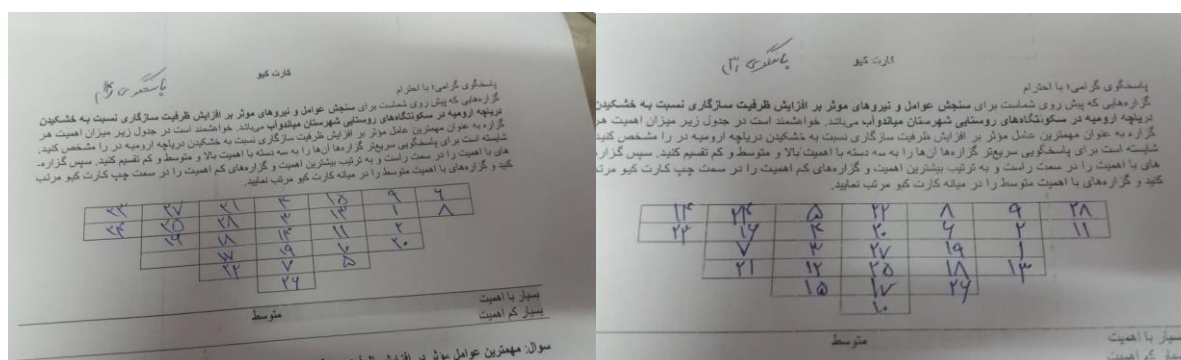 کارت کیو
پاسخگوی گرامی؛ با احترام
گزاره‌هایی که پیش روی شماست برای سنجش عوامل و نیروهای موثر بر افزایش ظرفیت سازگاری نسبت به خشکیدن
دریاچه ارومیه در سکونتگاه‌های روستایی شهرستان میاندوآب می‌باشد. خواهشمند است در جدول زیر میزان اهمیت هر
گزاره به عنوان مهمترین عامل مؤثر بر افزایش ظرفیت سازگاری نسبت به خشکیدن دریاچه ارومیه در را مشخص کنید.
شایسته است برای پاسخگویی سریع‌تر گزاره‌ها آن‌ها را به سه دسته با اهمیت بالا و متوسط و کم تقسیم کنید. سپس گزاره-
های با اهمیت را در سمت راست و به ترتیب بیشترین اهمیت و گزاره‌های کم اهمیت را در سمت چپ کارت کیو مرتب
کنید و گزاره‌های با اهمیت متوسط را در میانه کارت کیو مرتب نمایید.
۶ ۹ ۱۵ ۴ ۲۱ ۲۷ ۲۳
۸ ۱ ۱۳ ۳ ۲۸ ۲۵ ۲۴
۲ ۱۱ ۱۴ ۱۸ ۱۶
۲۰ ۱۰ ۱۹ ۱۷
۵ ۷ ۲۲
۲۶
بسیار با اهمیت
متوسط
بسیار کم اهمیت
سوال: مهمترین عوامل مؤثر بر
کارت کیو
پاسخگوی (۳)
پاسخگوی گرامی؛ با احترام
گزاره‌هایی که پیش روی شماست برای سنجش عوامل و نیروهای موثر بر افزایش ظرفیت سازگاری نسبت به خشکیدن
دریاچه ارومیه در سکونتگاه‌های روستایی شهرستان میاندوآب می‌باشد. خواهشمند است در جدول زیر میزان اهمیت هر
گزاره به عنوان مهمترین عامل مؤثر بر افزایش ظرفیت سازگاری نسبت به خشکیدن دریاچه ارومیه در را مشخص کنید.
شایسته است برای پاسخگویی سریع‌تر گزاره‌ها آن‌ها را به سه دسته با اهمیت بالا و متوسط و کم تقسیم کنید. سپس گزاره
های با اهمیت را در سمت راست و به ترتیب بیشترین اهمیت و گزاره‌های کم اهمیت را در سمت چپ کارت کیو مرتب
کنید و گزاره‌های با اهمیت متوسط را در میانه کارت کیو مرتب نمایید.
۲۸ ۹ ۸ ۲۲ ۵ ۲۴ ۱۴
۱۱ ۲ ۶ ۲۰ ۴ ۱۶ ۲۳
۱ ۱۹ ۲۷ ۳ ۷
۱۳ ۱۸ ۲۵ ۱۲ ۲۱
۲۶ ۱۷ ۱۵
۱۰
بسیار با اهمیت
متوسط
بسیار کم اهمیت